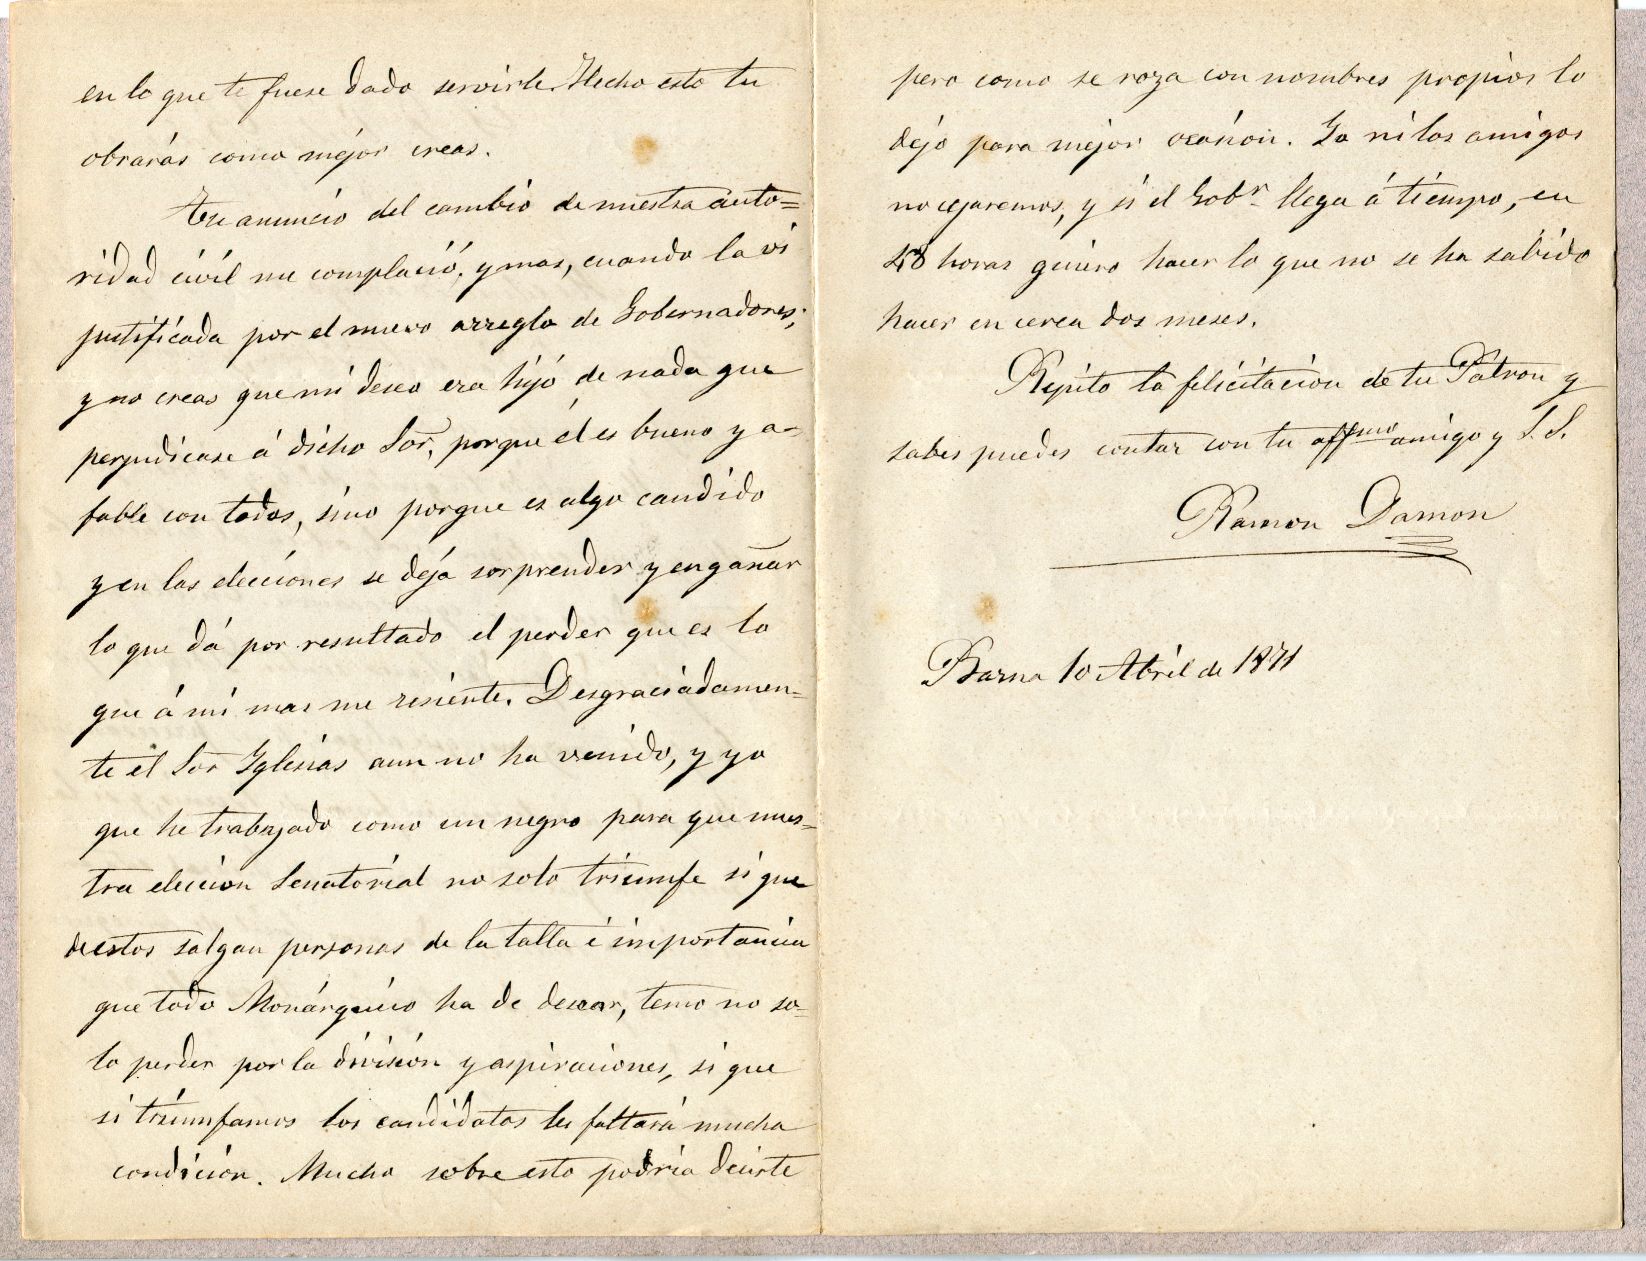 en lo que te fuese dado servirle. Hecho esto tu
obrarás como mejor creas.
Tu anuncio del cambio de nuestra auto=
ridad civil me complació, y mas, cuando la vi
justificada por el nuevo arreglo de Gobernadores;
y no creas que mi deseo era hijo de nada que
perjudicase á dicho Sor, porque él es bueno y a-
fable con todos, sino porque es algo candido
y en las elecciones se deja sorprender y engañar
lo que dá por resultado el perder que es lo
que á mi mas me resiente. Desgraciadamen-
te el Sor Iglesias aun no ha venido, y yo
que he trabajado como un negro para que nues=
tra eleccion Senatorial no solo triumfe si que
de estos salgan personas de la talla é importancia
que todo Monárquico ha de desear, temo no so-
lo perder por la división y aspiraciones, si que
si triumfamos los candidatos les faltará mucha
condición. Mucho sobre esto podria decirte
pero como se roza con nombres propios lo
dejo para mejor ocasion. Yo ni los amigos
no cejaremos, y si el Gobr. llega á tiempo, en
48 horas quiero hacer lo que no se ha sabido
hacer en cerca dos meses.
Repito la felicitacion de tu Patron y
sabes puedes contar con tu affmo amigo y S. S.
Ramon Damon
Barna 10 Abril de 1871